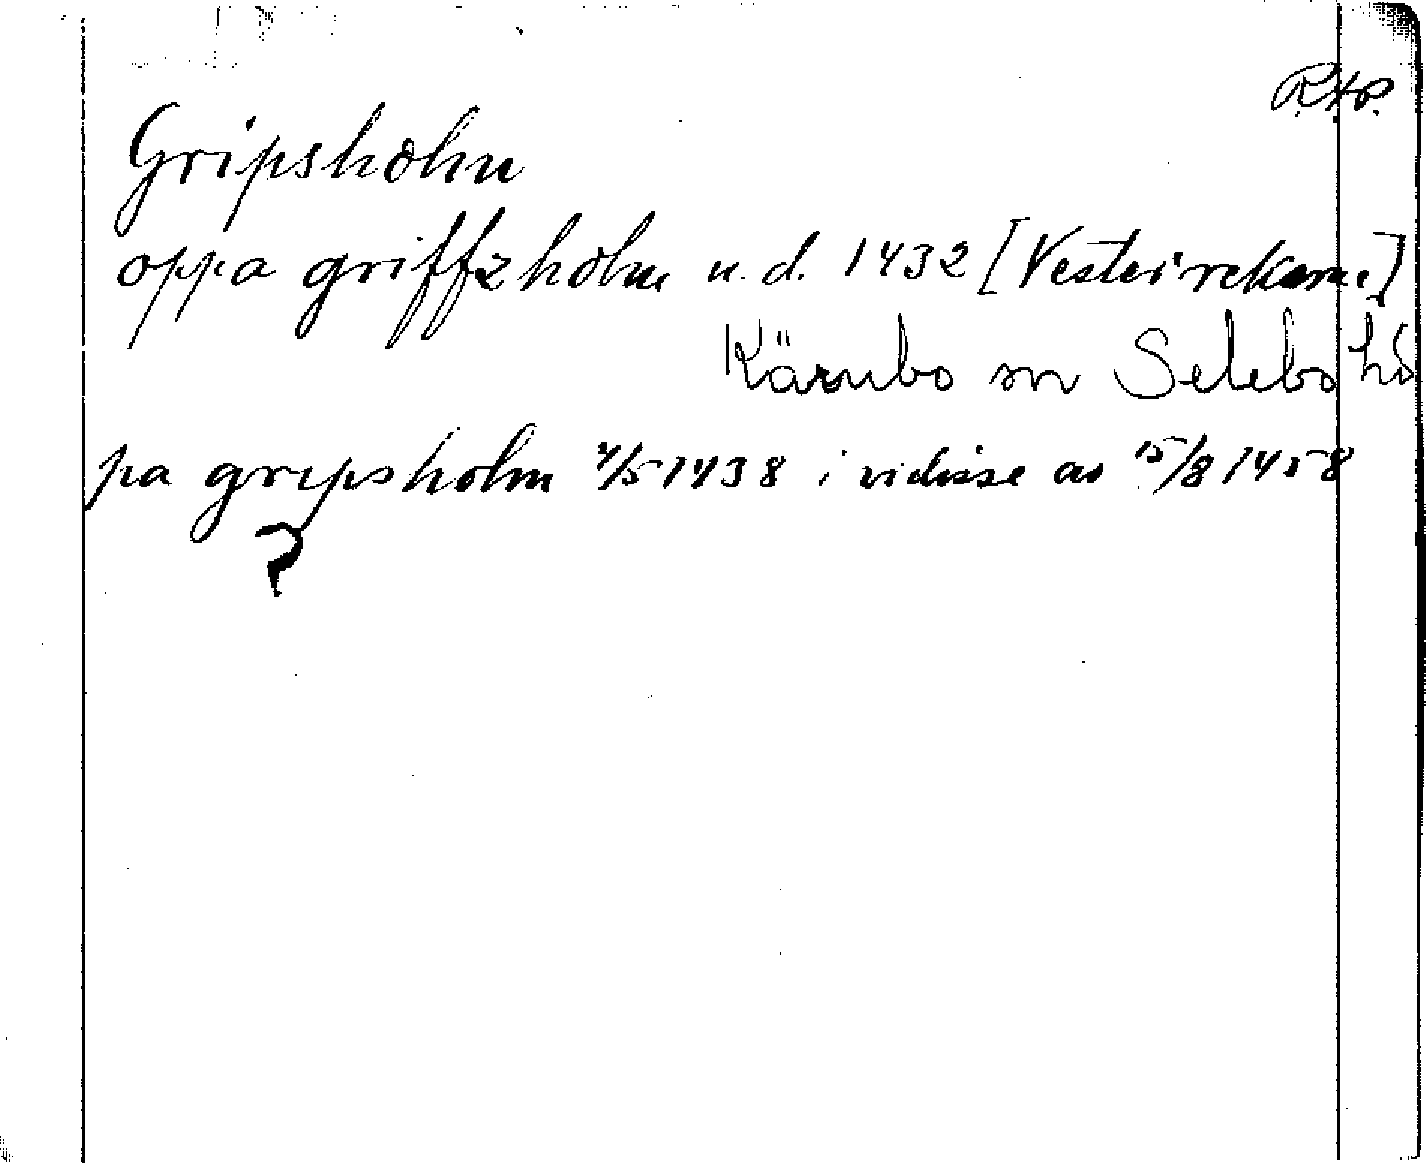 R.A.P.
Gripsholm
oppa griffzholm u. d. 1432 [Vesteirekarne]
Kärnbo sn Selebo hd
pa gripsholm 4/5 1438 i vidisse av 15/8 1458